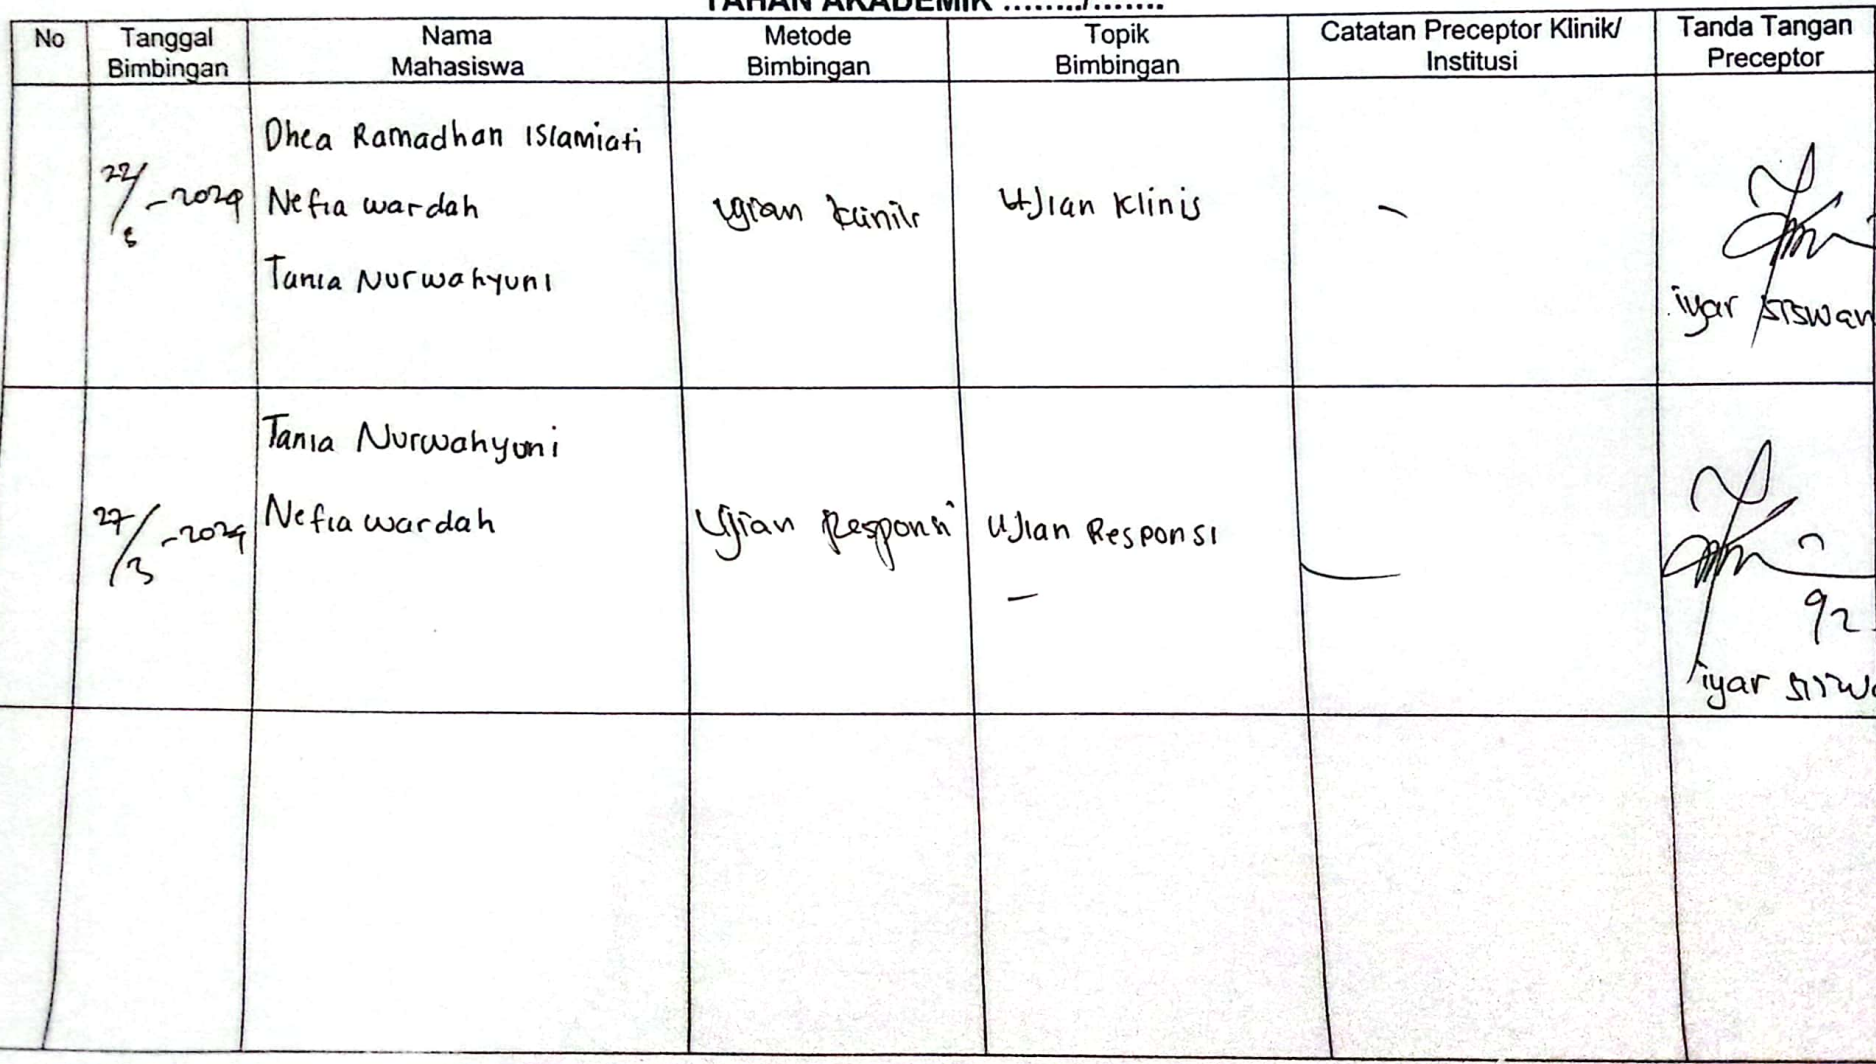 TAHAN AKADEMIK ......../.......
No
Tanggal
Bimbingan
Nama
Mahasiswa
Metode
Bimbingan
Topik
Bimbingan
Catatan Preceptor Klinik/
Institusi
Tanda Tangan
Preceptor
22/ -2024
Dhea Ramadhan Islamiati
Nefia wardah
Tania Nurwahyuni
Ujian Klinik
Ujian Klinis
-
iyar siswan
27/3 -2024
Tania Nurwahyuni
Nefia wardah
Ujian Responsi
Ujian Responsi
-
iyar sisw